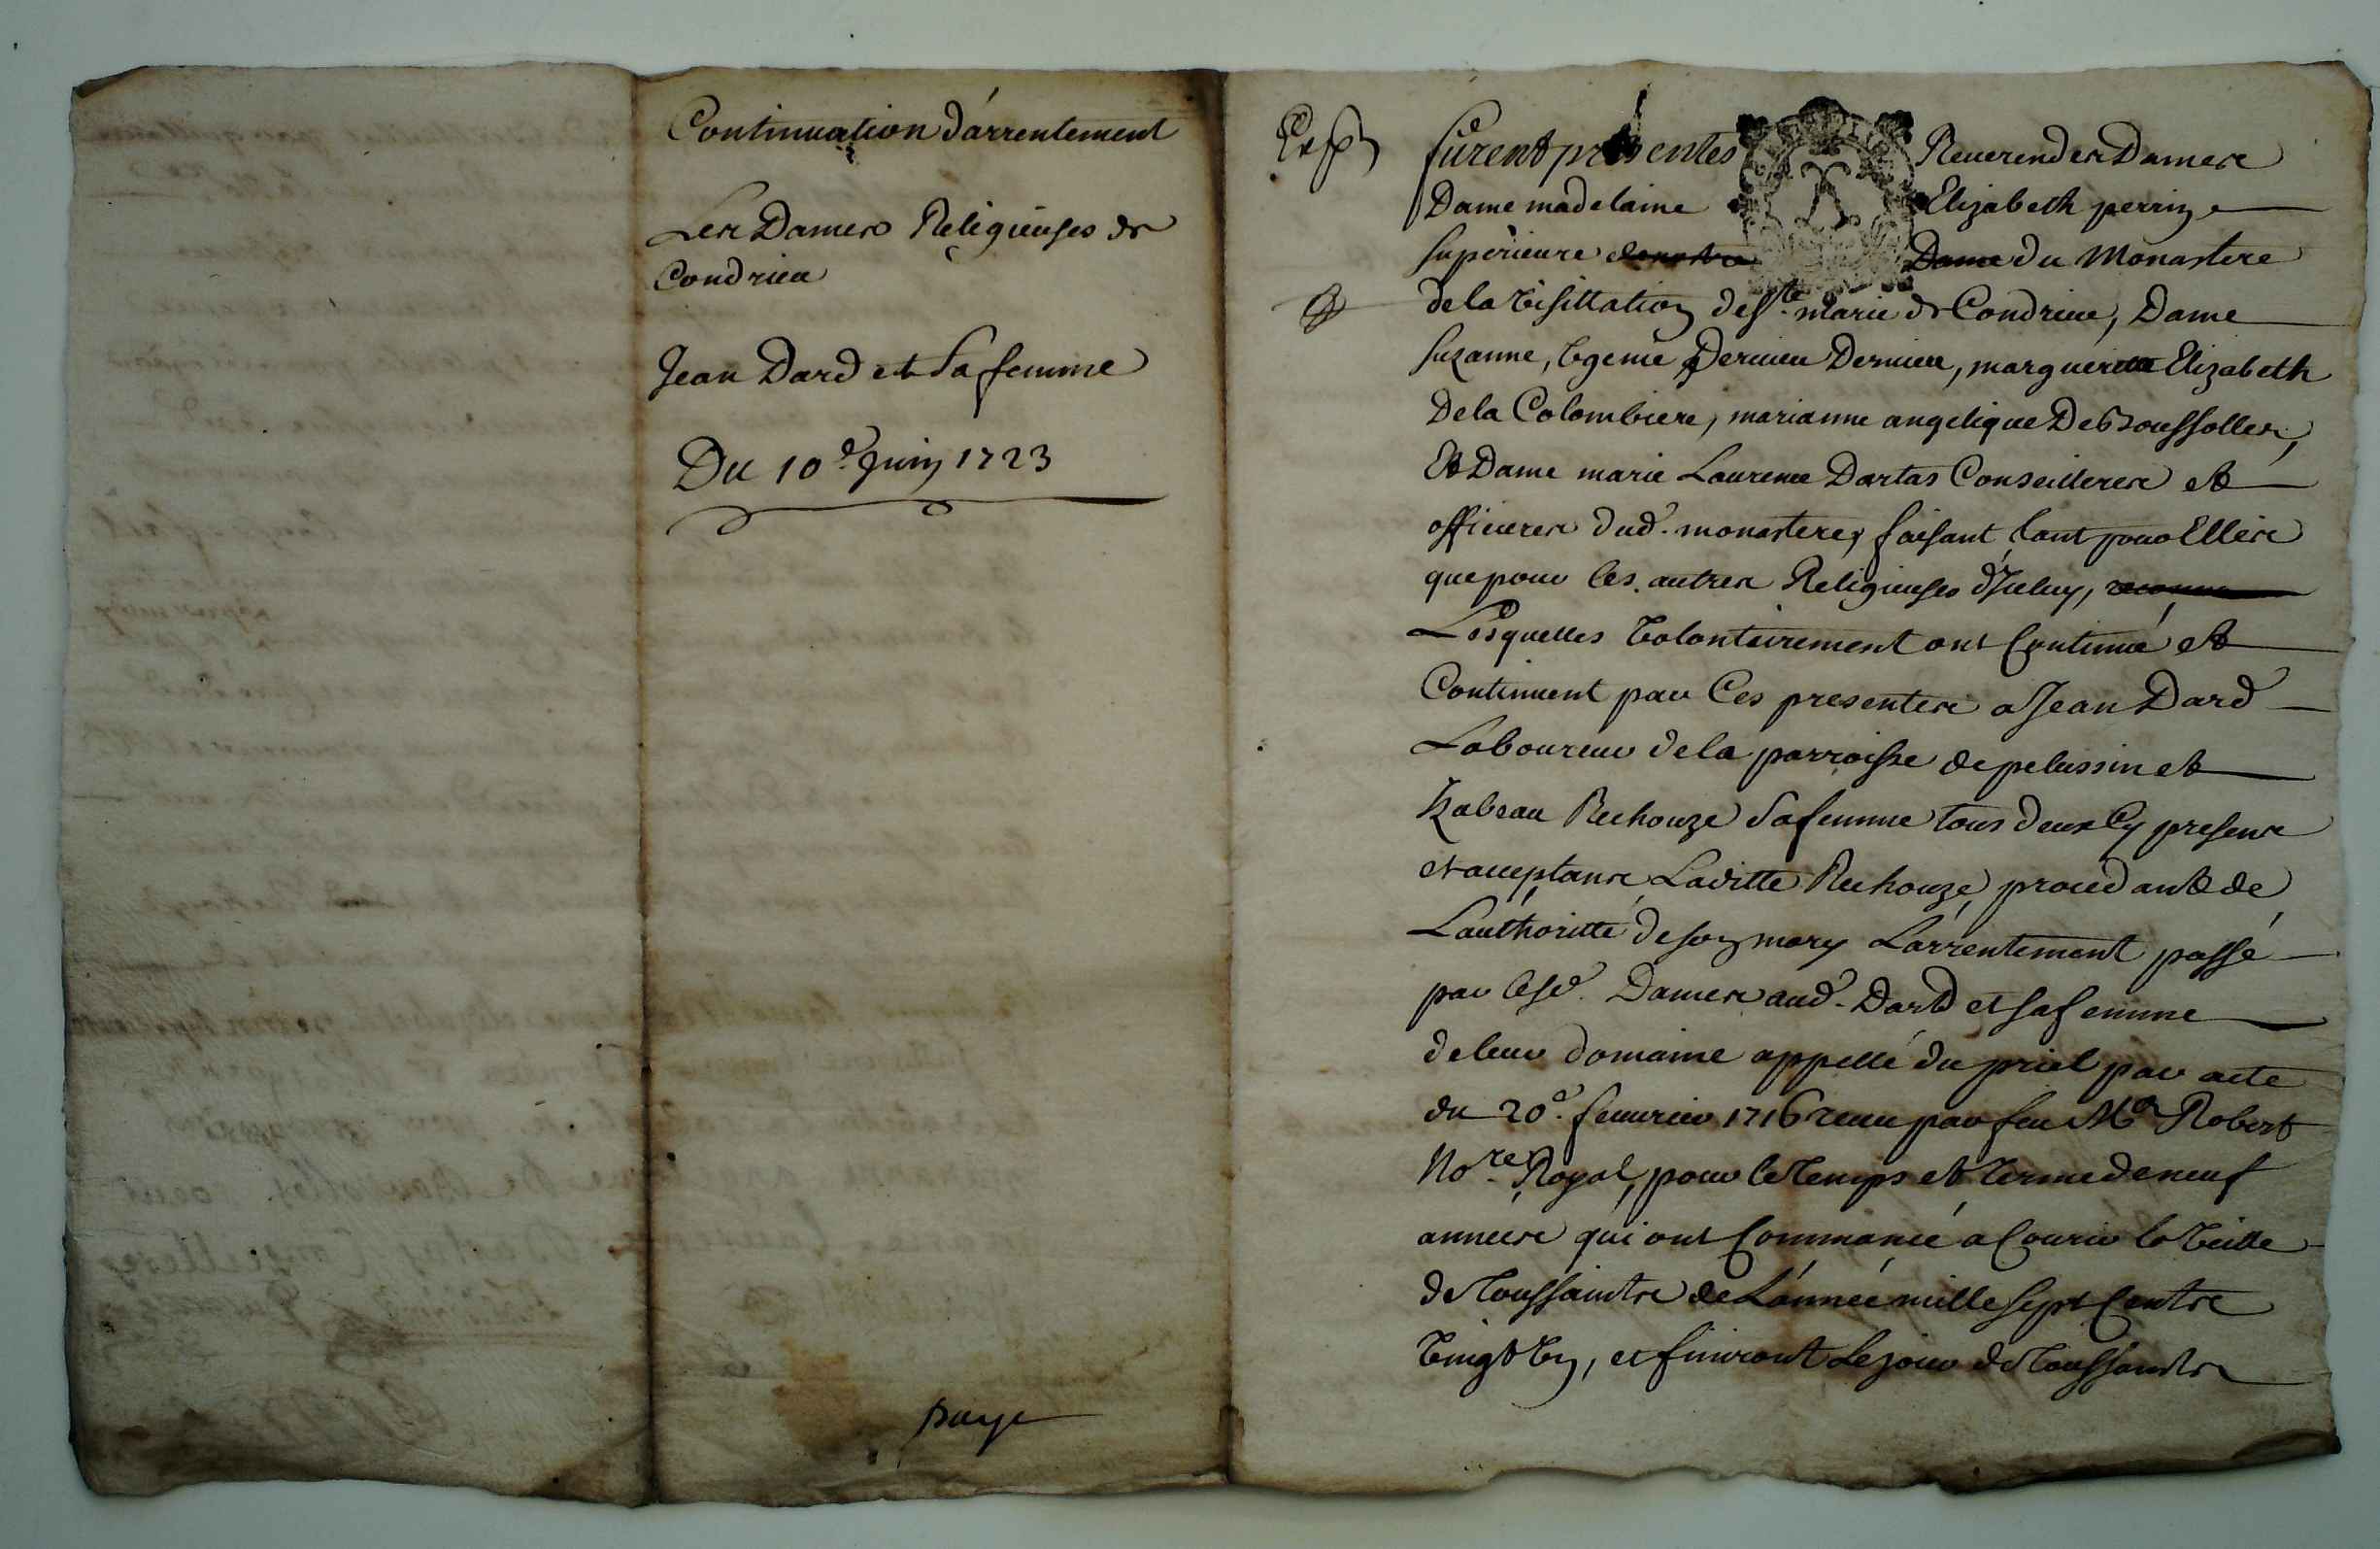 Continuation d'arrentement
Les Dames Religieuses de
Condrieu
Jean Dard et Sa femme
Du 10e Juin 1723
paye
Exp
furent presentes Reuerendes Dames
Dame madelaine Elizabeth perrin
superieure Dame du Monastere
de la Visittation de Ste marie de Condrieu, Dame
suzanne, Dernieu Dernieu, margueritte Elizabeth
De la Colombiere, marianne angelique De Boussolles,
Et Dame marie Laurence Dartas Conseilleres et
officieres dud. monastere, faisant tant pour Elles
que pour les autres Religieuses d'Iceluy,
Lesquelles Volontairement ont Continué et
Continuent par Ces presentes a Jean Dard
Laboureur de la parroisse de pelussin et
Izabeau Rechouze Sa femme tous deux Cy presens
et acceptans, Laditte Rechouze, procedant de
L'authoritté de son mary L'arrentement passé
par lesd. Dames aud. Dard et sa femme
de leur domaine appellé du priel par acte
du 20e feuurier 1716 receu par feu Me Robert
Nore Royal, pour le Temps et Terme de neuf
années qui ont Commancé a Courir la Veille
de Toussaints de L'année mille sept Cents
Vingt Un, et finiront Le jour de Toussaints